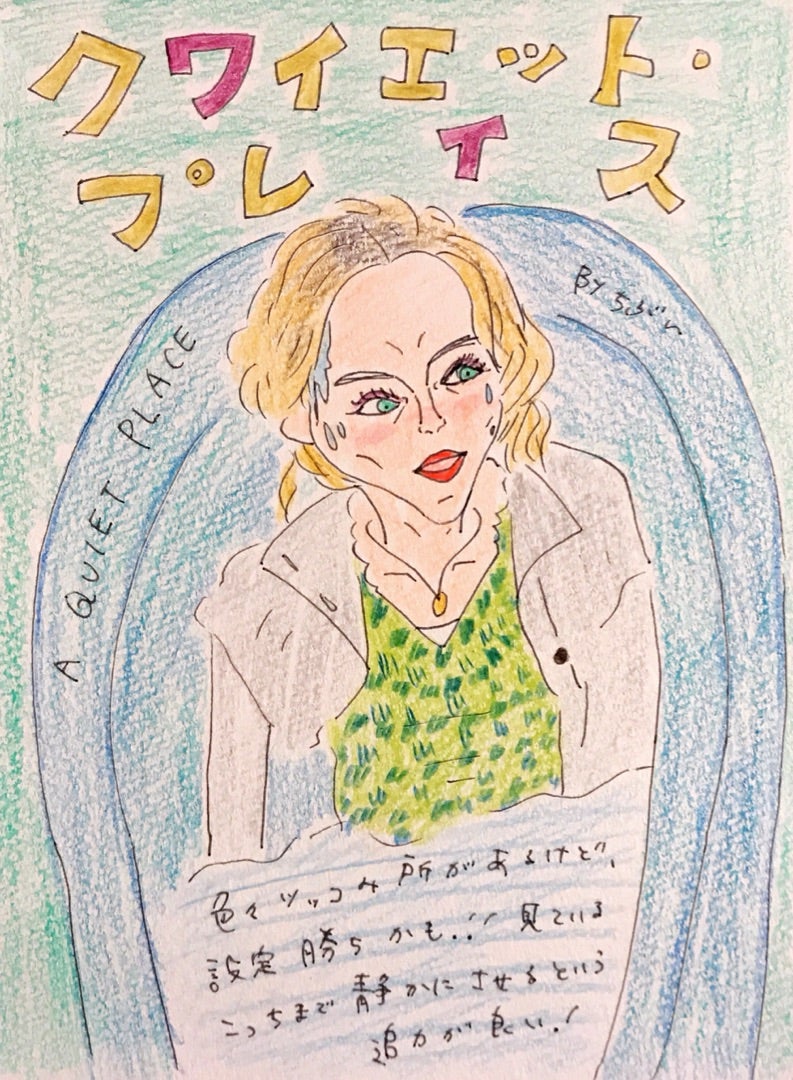 クワイエット・
プレイス
A QUIET PLACE
BY ちぶ~
色々ツッコみ所があるけど、
設定勝ちかも!! 見ている
こっちまで静かにさせるという
迫力が良い!